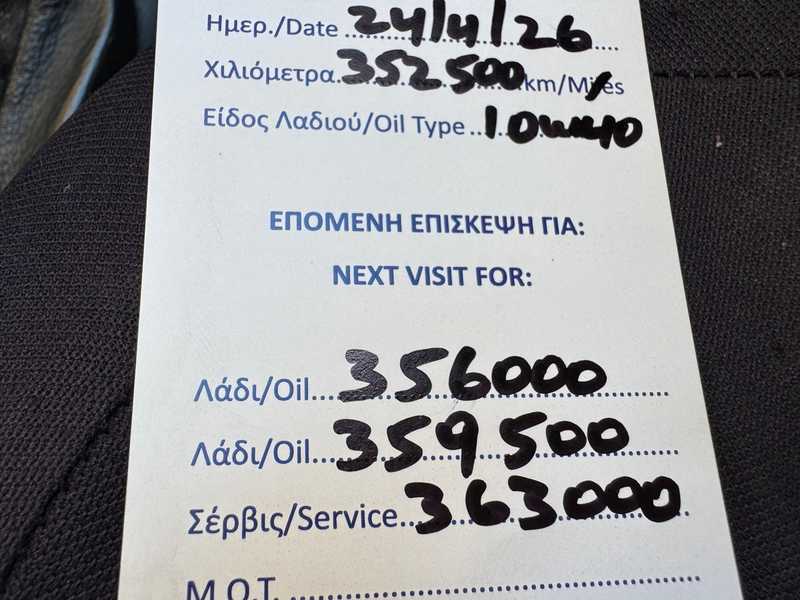 Ημερ./Date 24/4/26
Χιλιόμετρα 352500 km/Miles
Είδος Λαδιού/Oil Type 10W40
ΕΠΟΜΕΝΗ ΕΠΙΣΚΕΨΗ ΓΙΑ:
NEXT VISIT FOR:
Λάδι/Oil 356000
Λάδι/Oil 359500
Σέρβις/Service 363000
M.O.T.